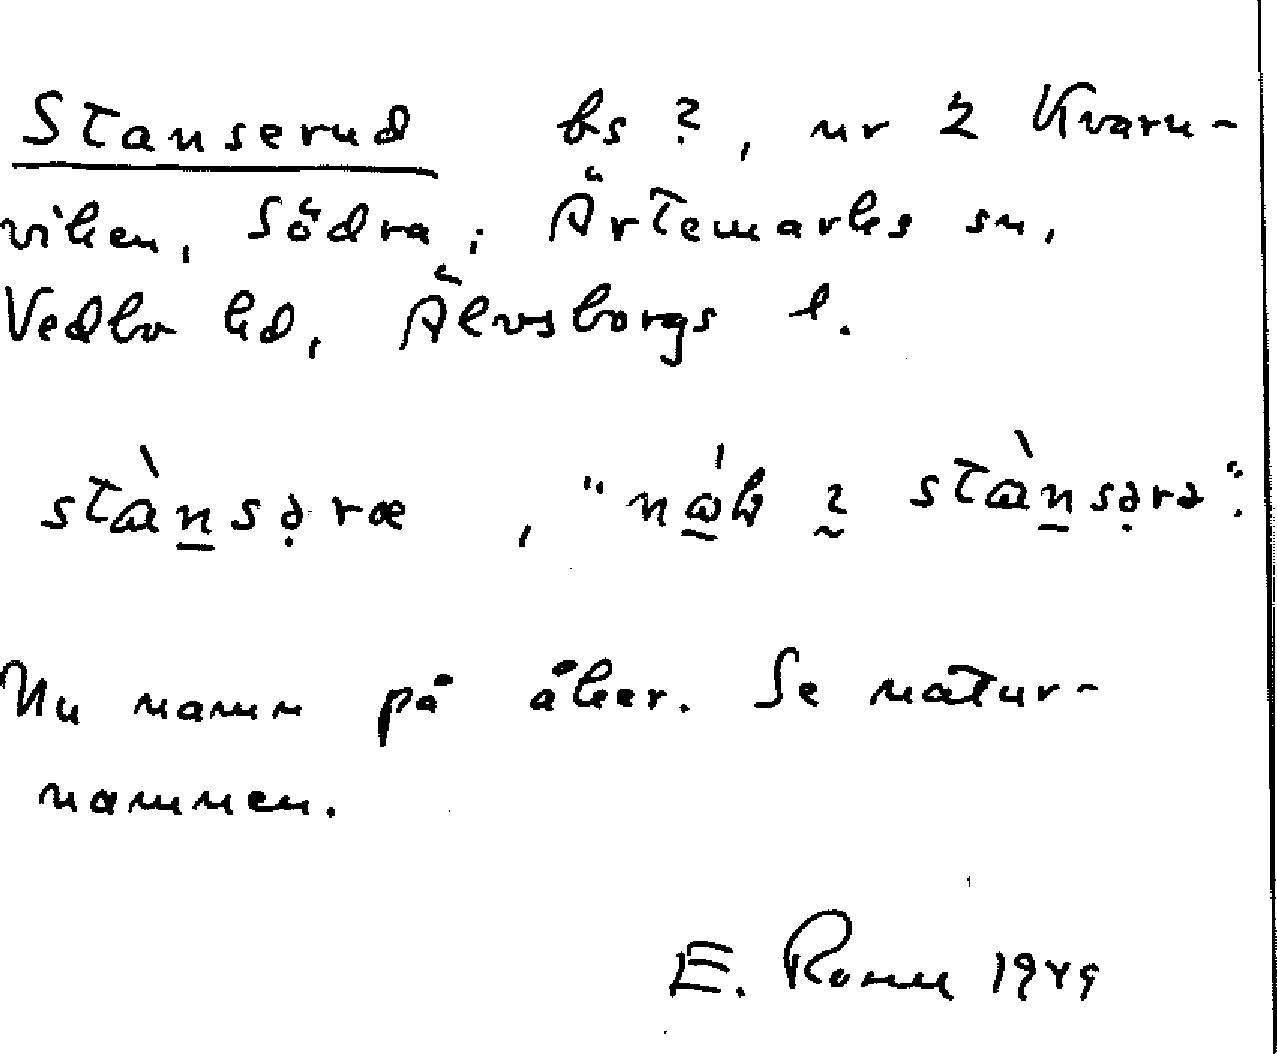 Stanserud bs ?, nr 2 Kvarn-
viken, Södra; Ärtemarks sn,
Vedbo hd, Älvsborgs l.
stànsəræ, "
Nu namn på åker. Se natur-
namnen.
E. Ronne 1949